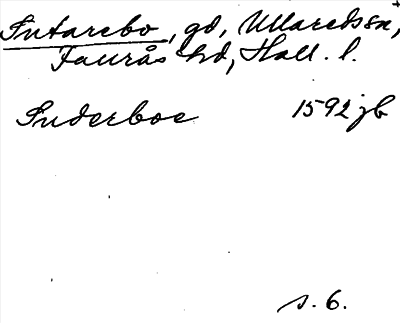 Sutarebo, gd, Ullareds sn,
Faurås hd, Hall. l.
Suderboe 1592 jb
s. 6.